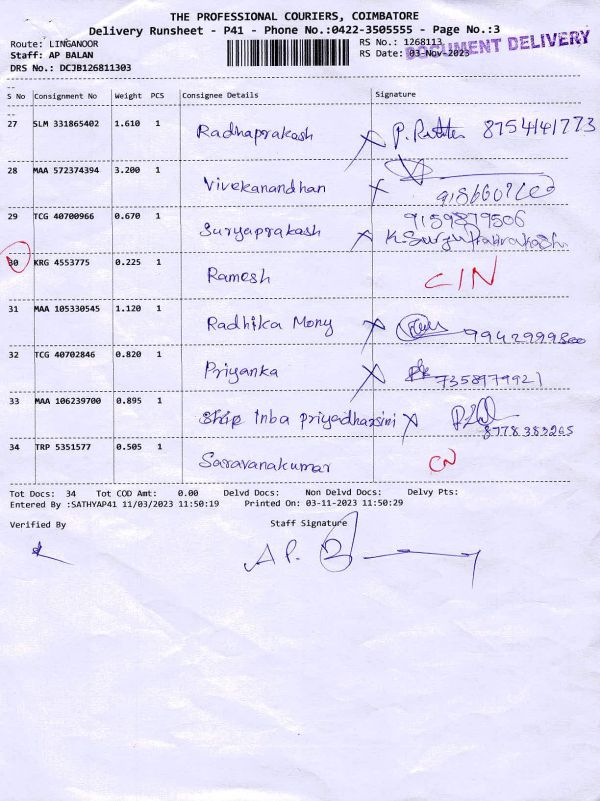 THE PROFESSIONAL COURIERS, COIMBATORE
Delivery Runsheet - P41 - Phone No.:0422-3505555 - Page No.:3
Route: LINGANOOR
RS No.: 1268113
DOCUMENT DELIVERY
Staff: AP BALAN
RS Date: 03-Nov-2023
DRS No.: DCJB126811303
S No Consignment No Weight PCS Consignee Details Signature
27 SLM 331865402 1.610 1 Radhaprakash 8754141773
28 MAA 572374394 3.200 1 Vivekanandhan
29 TCG 40700966 0.670 1 Suryaprakash 9159879506
30 KRG 4553775 0.225 1 Ramesh
31 MAA 105330545 1.120 1 Radhika Mony 9942999800
32 TCG 40702846 0.820 1 Priyanka 7358179921
33 MAA 106239700 0.895 1 Inba Priyadharsini 8778383265
34 TRP 5351577 0.505 1 Saravanakumar CN
Tot Docs: 34 Tot COD Amt: 0.00 Delvd Docs: Non Delvd Docs: Delvy Pts:
Entered By :SATHYAP41 11/03/2023 11:50:19 Printed On: 03-11-2023 11:50:29
Verified By Staff Signature
A P. B